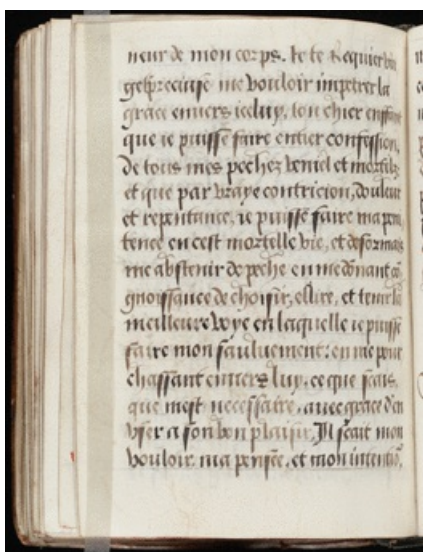 neur de mon corps. Je te Requier vier
ge precieuse me vouloir impetrer la
grace enuers iceluy, ton chier enffant
que ie puisse faire entier confession,
de tous mes pechez veniel et mortelz
et que par vraye contricion, douleur
et repentance, ie puisse faire ma peni
tence en cest mortelle vie, et desormais
me abstenir de peche en me dōnant cō
gnoissance de choisir, eslire, et tenir la
meilleure voye en laquelle ie puisse
faire mon sauluement: en me pour
chassant enuers luy, ce que scais,
que mest necessaire, auec grace den
vser a son bon plaisir. Il scait mon
vouloir, ma pensee, et mon intentiō,